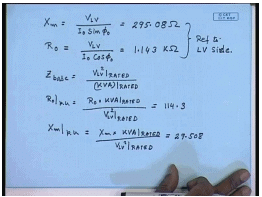 Xm = VLV / I0 Sinφ0 = 295.08Ω
R0 = VLV / I0 Cosφ0 = 1.143 KΩ
Ref to LV Side.
Zbase = VLV²|RATED / (KVA)|RATED
R0|pu = R0 × KVA|RATED / VLV²|RATED = 114.3
Xm|pu = Xm × KVA|RATED / VLV²|RATED = 29.508